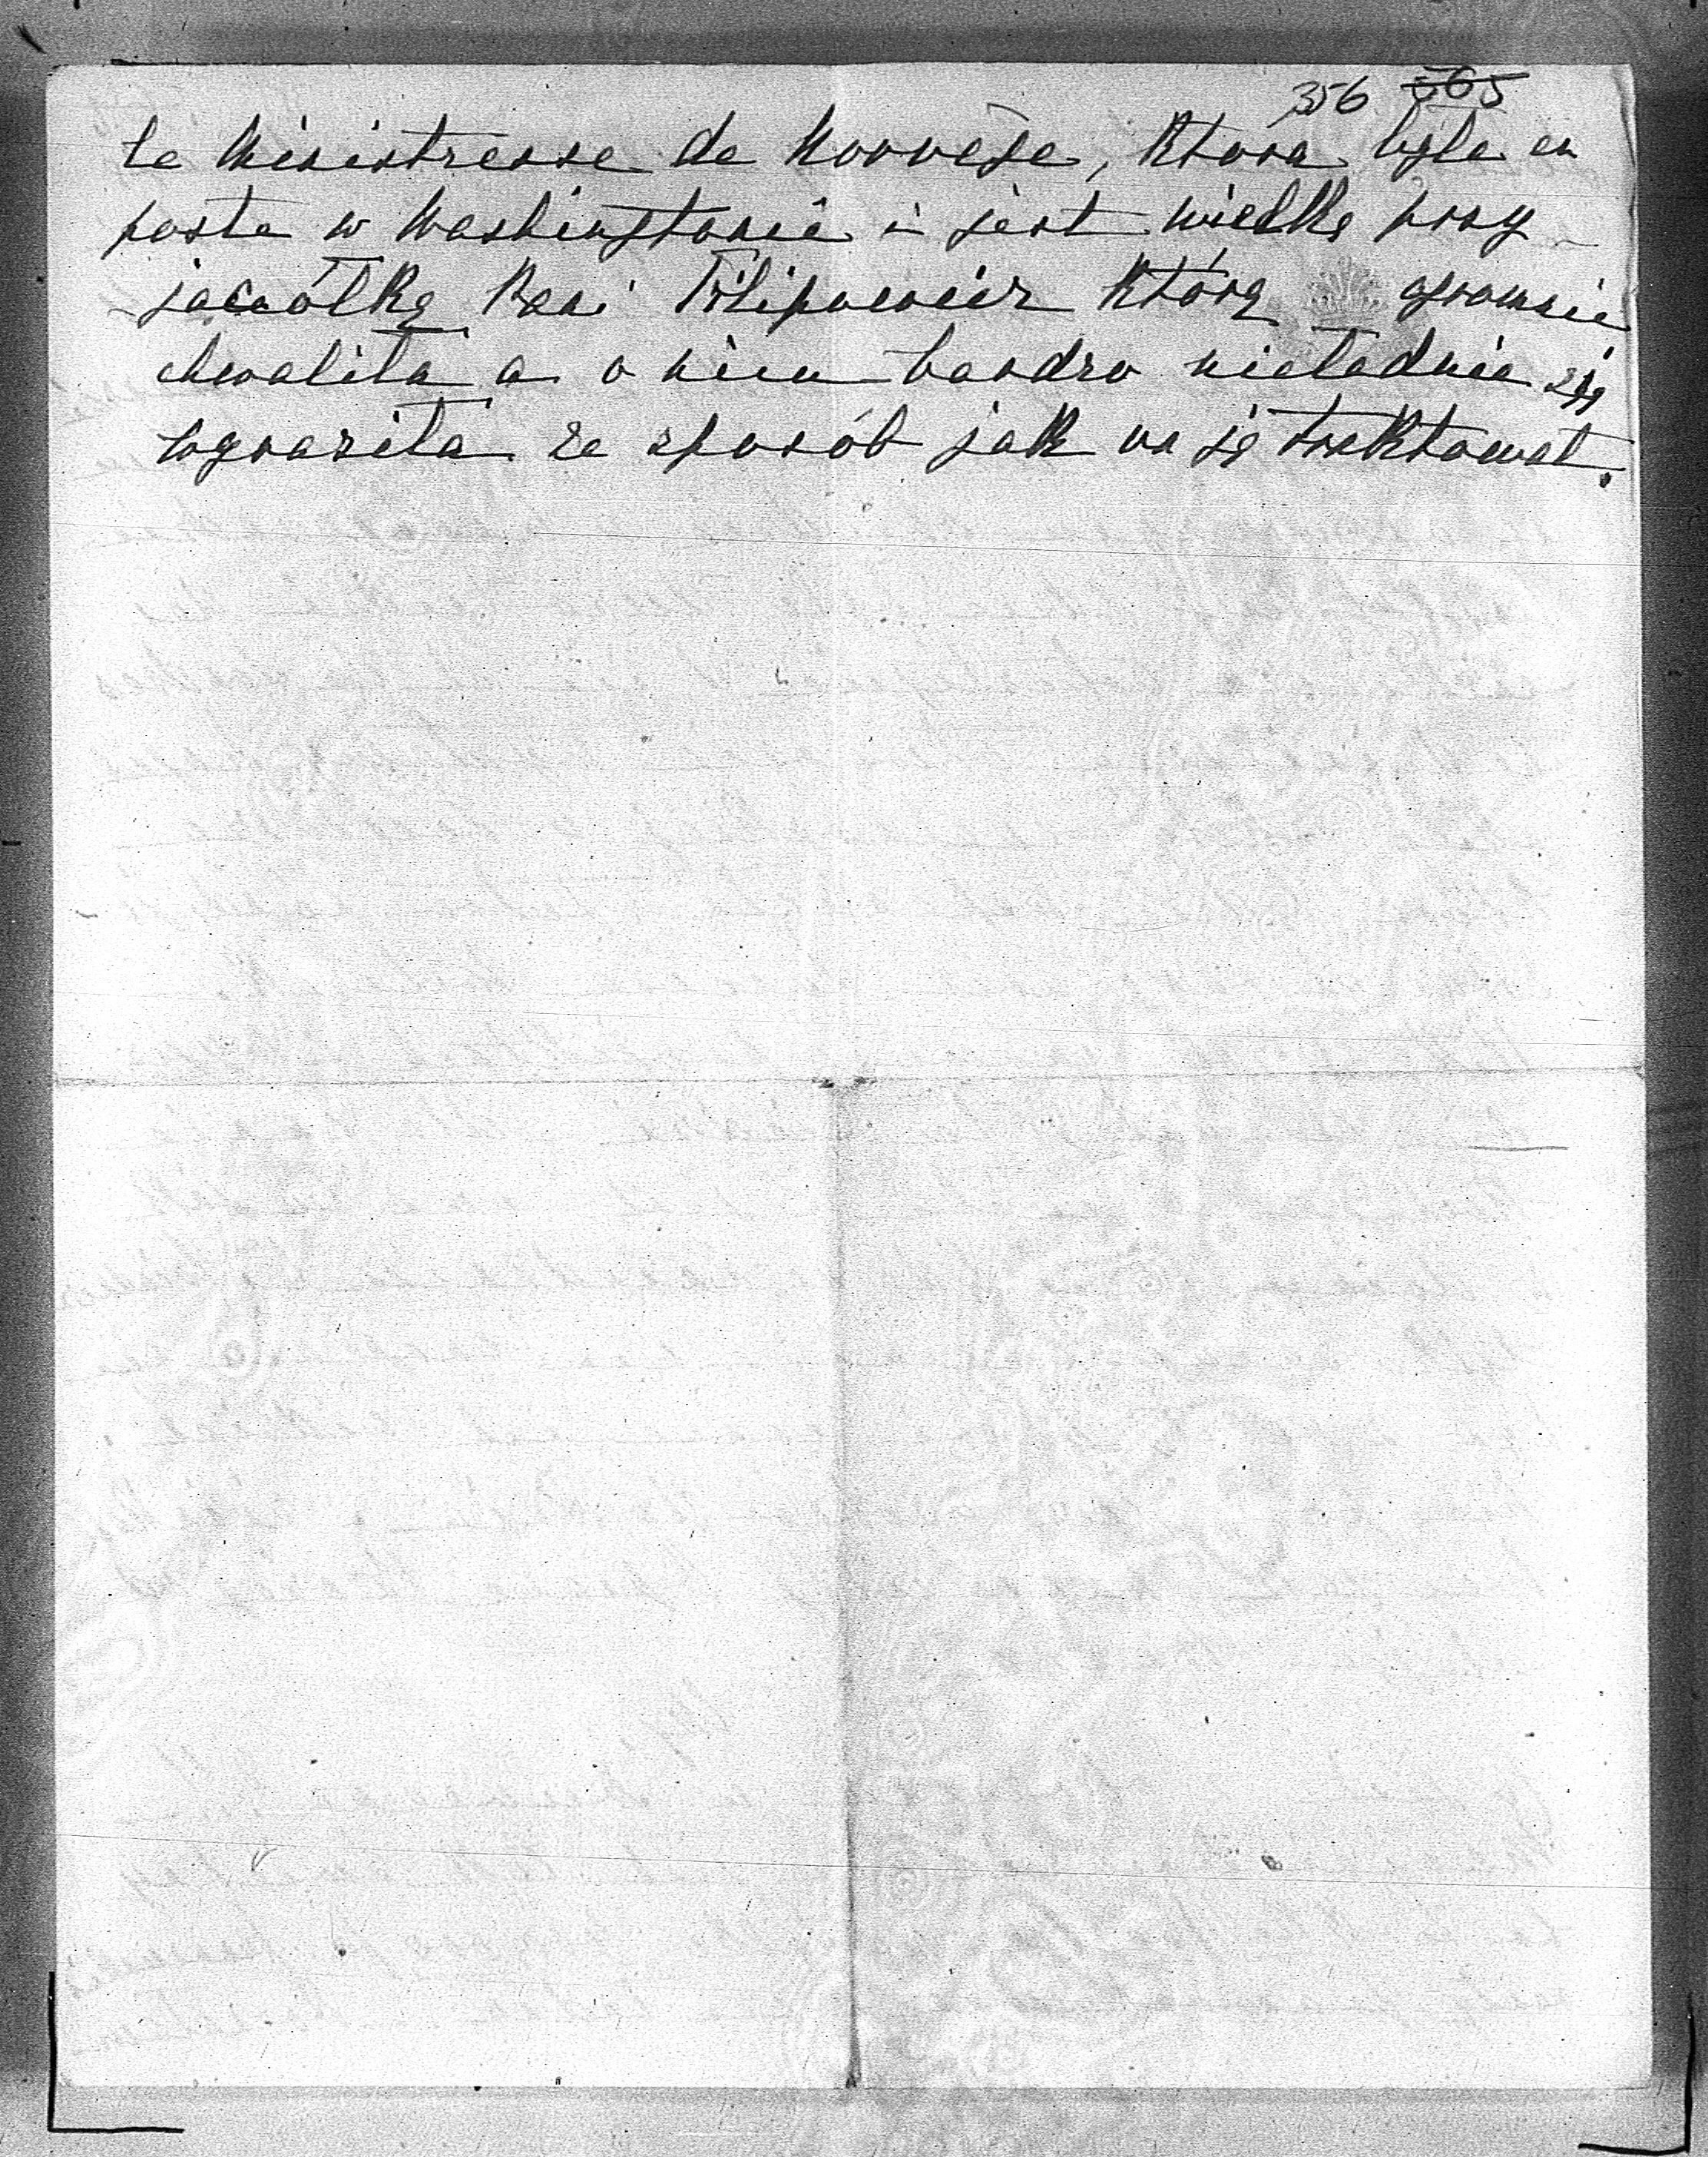 356 565
la Ministresse de Norvège, która była en
poste w Washingtonie i jest wielką przy-
jaciółką Pani Filipowicz którą ogromnie
chwaliła a o nim bardzo nieładnie się
wyraziła że sposób jak on ją traktował.